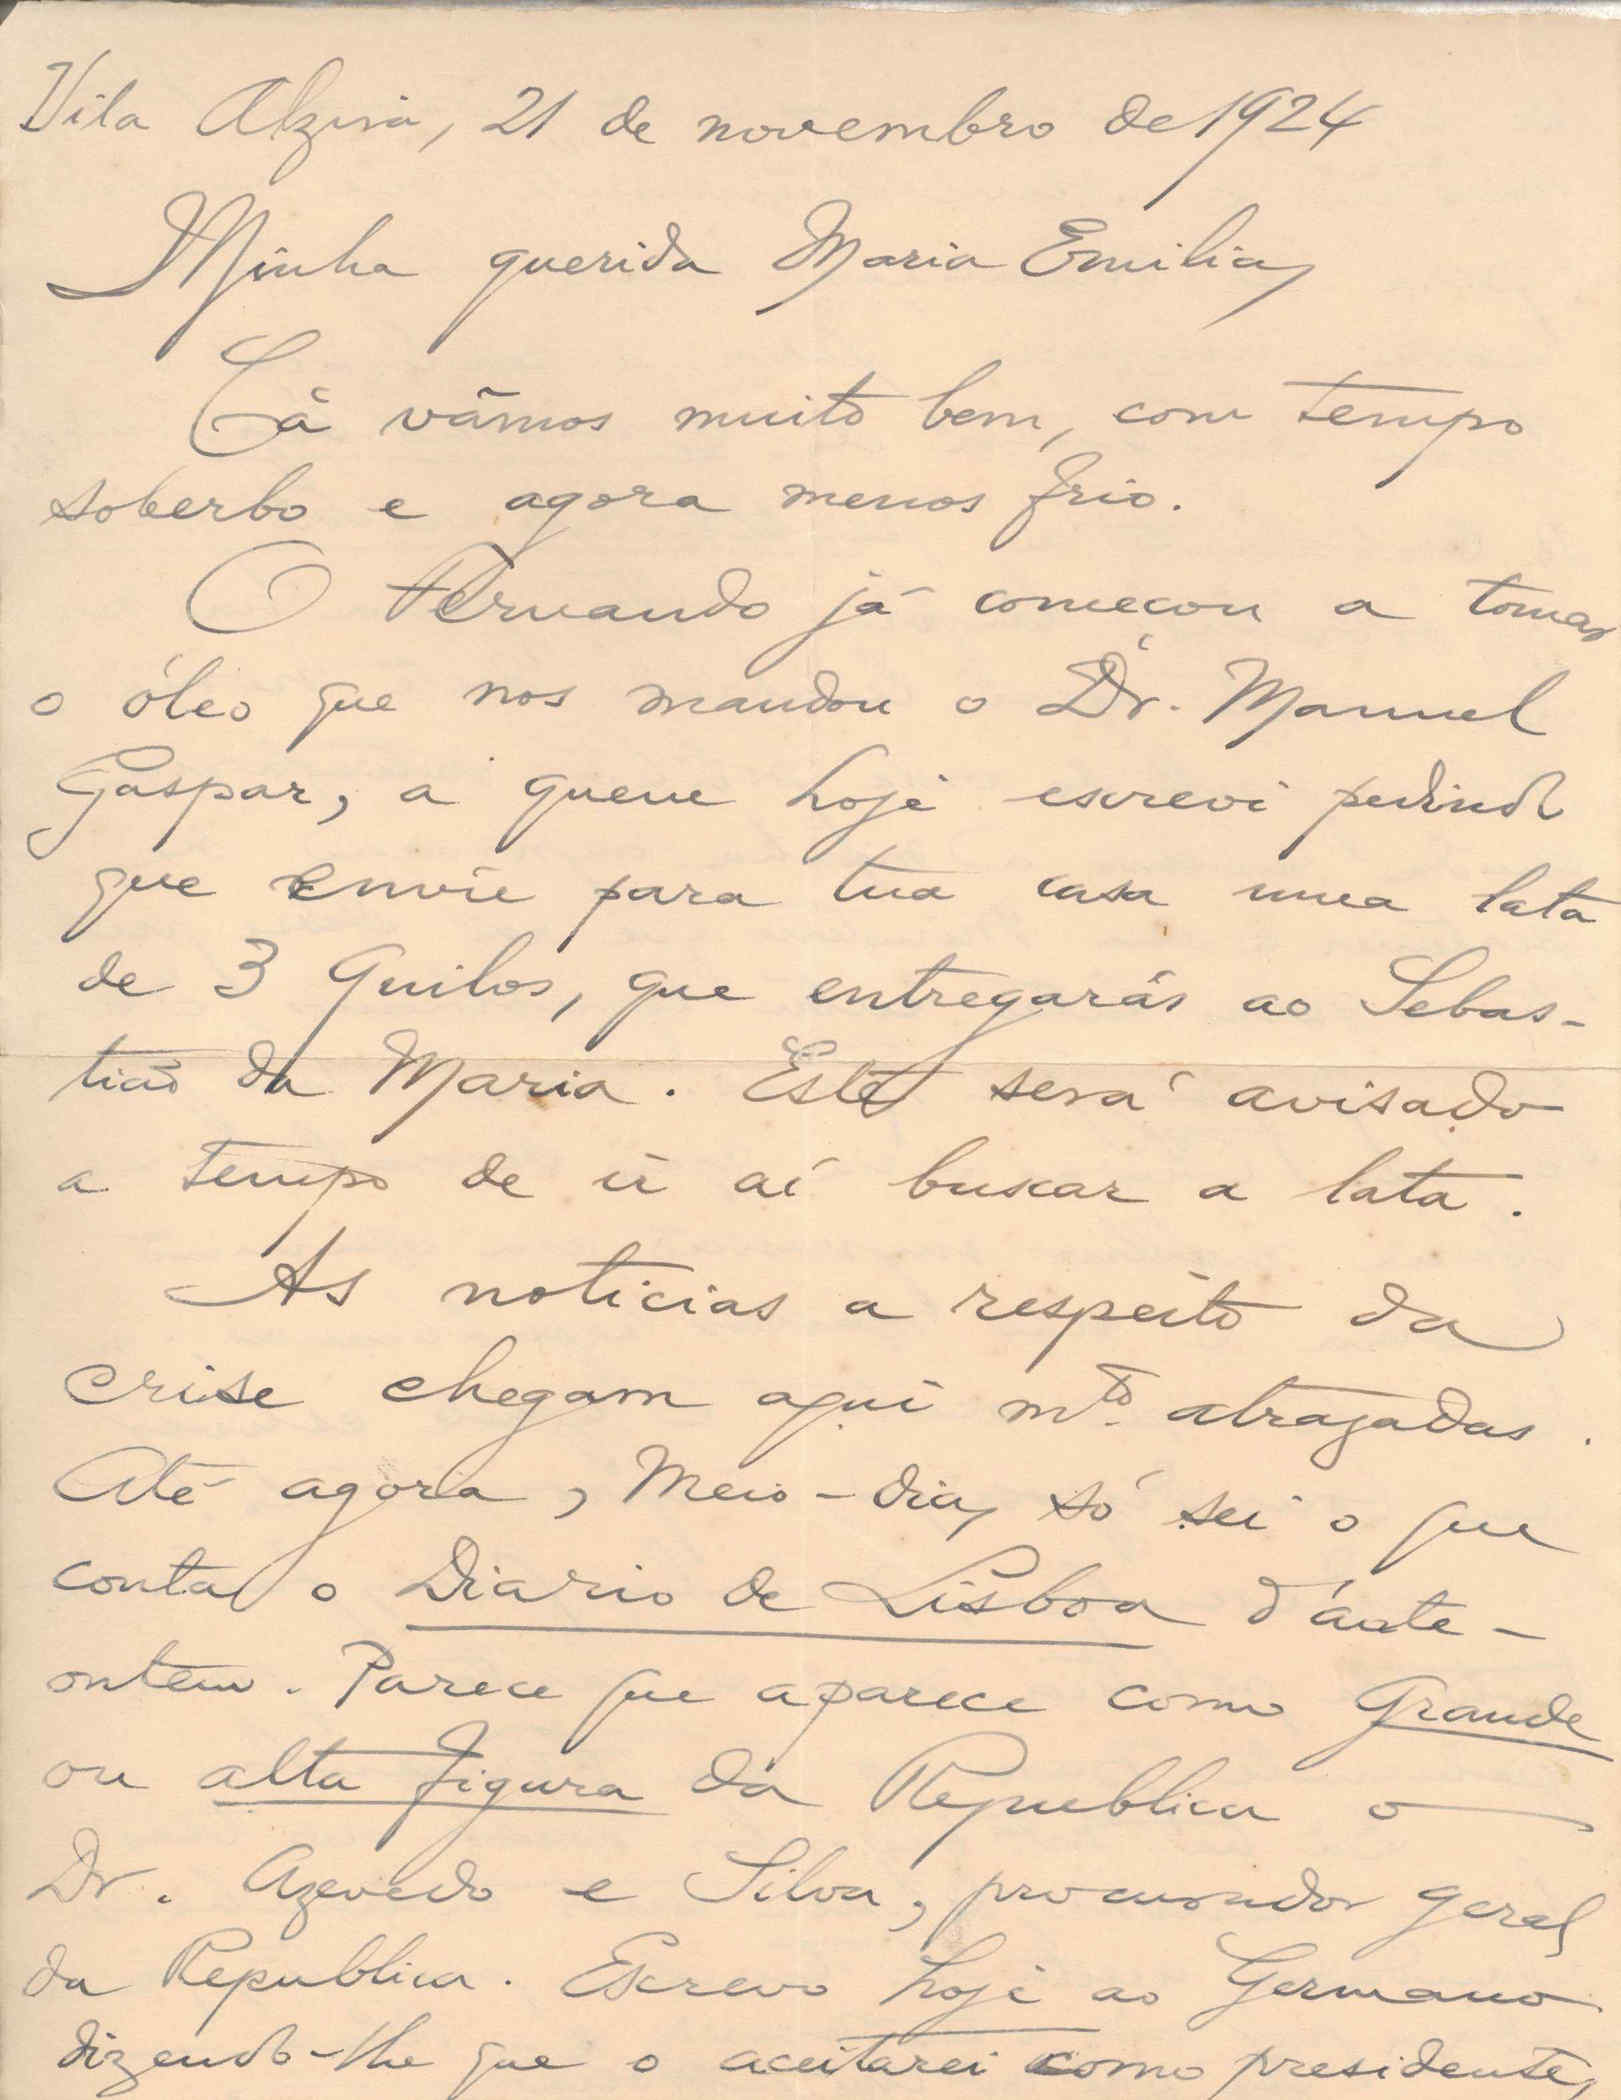 Vila Alzira, 21 de novembro de 1924
Minha querida Maria Emilia,
Cá vâmos muito bem, com tempo
soberbo e agora menos frio.
O Fernando já começou a tomar
o óleo que nos mandou o Dr. Manuel
Gaspar, a quem hoje escrevi pedindo
que envie para tua casa uma lata
de 3 Quilos, que entregarás ao Sebas-
tião da Maria. Este será avisado
a tempo de ir aí buscar a lata.
As noticias a respeito da
crise chegam aqui mto. atrazadas.
Até agora, Meio-dia, só sei o que
conta o Diario de Lisboa d'ánte-
ontem. Parece que aparece como Grande
ou alta figura da Republica o
Dr. Azevedo e Silva, procurador geral
da Republica. Escrevo hoje ao Germano
dizendo-lhe que o aceitarei como presidente,